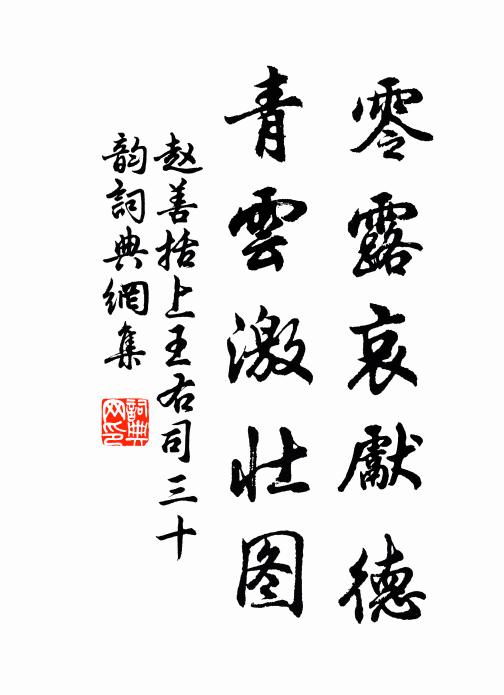 零露哀獻德
青雲激壯图
赵善括上王右司三十
韵詞典網集
詞典
网印